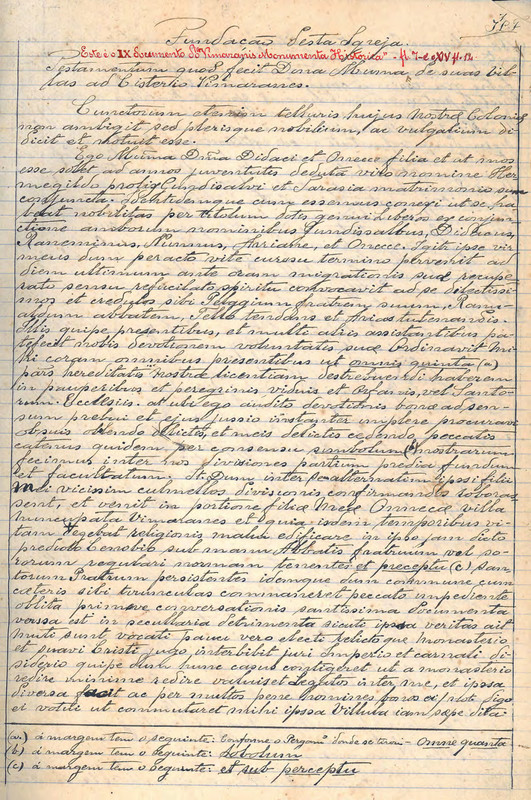 747
Fundação desta Igreja.
Este é o IX Documento do "Vimaranis Monumenta Historica" - fl. 7 e XIV fl. 12
Testamentum quod fecit Dona Muma, de suas vil-
tas ad Cisterio Vimaranes.
Cunctorum etenim telluris hujus nostræ Colonis
non ambigit sed plerisque nobilium, ac vulgatium di
dicit et motuit esse.
Ego Muma Dña Didaci et Onece filia et ut mos
esse solet ad annos juventutis deduta viro nomine Her
megildo prolis Gundisalvi et Tarasia matrimonio sum
conjuncta. Identidemque cum essemus conjugi ut se ha
beat nobilitas per titulum dotis genui liberos ex conjun
ctione amborum nominibus Gundissalbus, Didacus,
Ranemirus, Nunnus, Arriane, et Onecce. Igitur ipse vir
meus dum peracto vite cursu termino pervenit ad
diem ultimum ante oram migrationis suæ recupe
rato sensu refocilato spiritu convocavit ad se dilectissi
mos et credulos sibi Pelagium fratrem suum, Rani
abbatem, Tello et Arias
His quipe presentibus, et multi aliis assistantibus pa
tefecit nobis devotionem voluntatis suæ Ordinavit mi
hi coram omnibus presentibus ut omnis quinta (a)
pars hereditatis nostræ licentiam destribuendi haberem
in pauperibus et peregrinis viduis et Orfanis, vel Santo
rum Ecclesiis. at ubi ego audito devotionis bonæ ad sen
sum prebui et ejus jussio instanter implere procuravi
obsuis delictis, et meis delictis cedendo, peccatis
catenus quidem per consensu simbolum (b) nostrarum
fecimus inter nos divisiones partium predia fundum
et facultatum. At Dum inter se alternatim ipsi filii
mei vicissim culmellos divisionis confirmandos robora
sent, et venit in portione filiæ meæ Onnecæ villa
nuncupata Vimaranes et quia isdem temporibus vi
tam degebat religionis malui edificare in ipso jam dicto
predicto Cenobio sub manu Abbatis fratruum vel so
rorum regulari normam tenentes et preceptu (c) san-
torum Pratrum persistentes idemque dum commune cum
cæteris sibi tirunculas commaneret peccato impediente
oblita primeve conversationis santissima documenta
versa est in secullaria detrimenta sicuti ipsa veritas ait
multi sunt vocati pauci vero electi relictoque monasterio
et suavi Cristi jugo, interbibit juri Imperiis et carnali di-
siderio quipe dum hunc casus contigeret ut a monasterio
redire minime redire valuiset Legatos inter me, et ipsa
diversa facit ac per multos perre homines bonos
ei votili ut commutaret mihi ipsa Villula iam sæpe dita
(a) á margem tem o seguinte: Conforme o Pergam° donde se tirou - Omnie quanta -
(b) á margem tem o seguinte: Sobolum
(c) á margem tem o seguinte: et sub perceptu